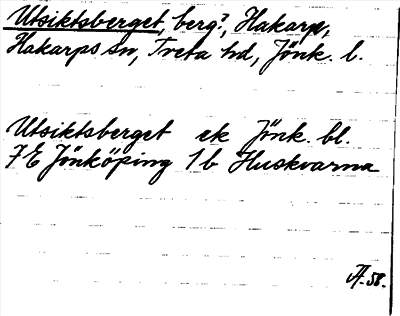 Utsiktsberget, berg?, Hakarp,
Hakarps sn, Tveta hd, Jönk. l.
Utsiktsberget ek Jönk. bl.
7E Jönköping 1b Huskvarna
Å.58.